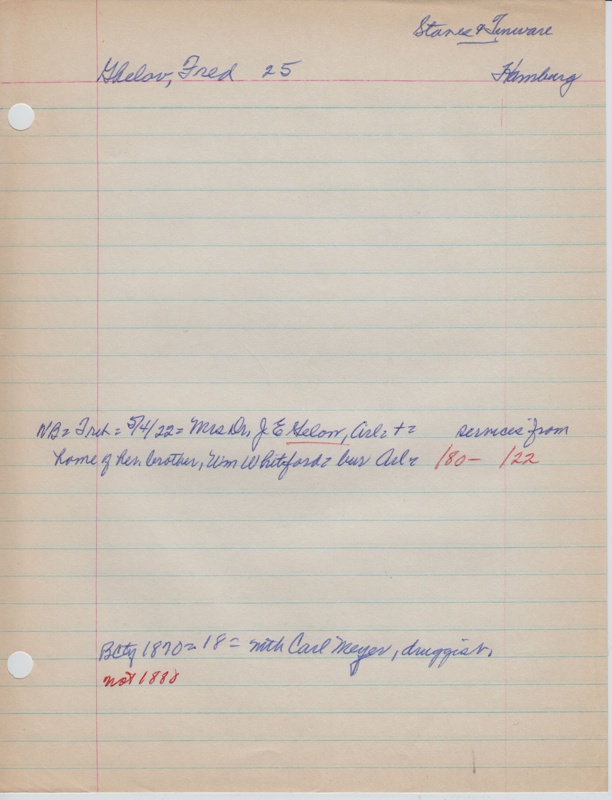 Stoves & Tinware
Ghelov, Fred 25 Hamburg
NB= Trib= 5/4/22= Mrs Dr, J E Gelow, Arl= += services from
home of her brother, Wm Whiteford= bur Arl= /80- /22
Bcty 1870= 18= with Carl Meyer, druggist,
not 1888